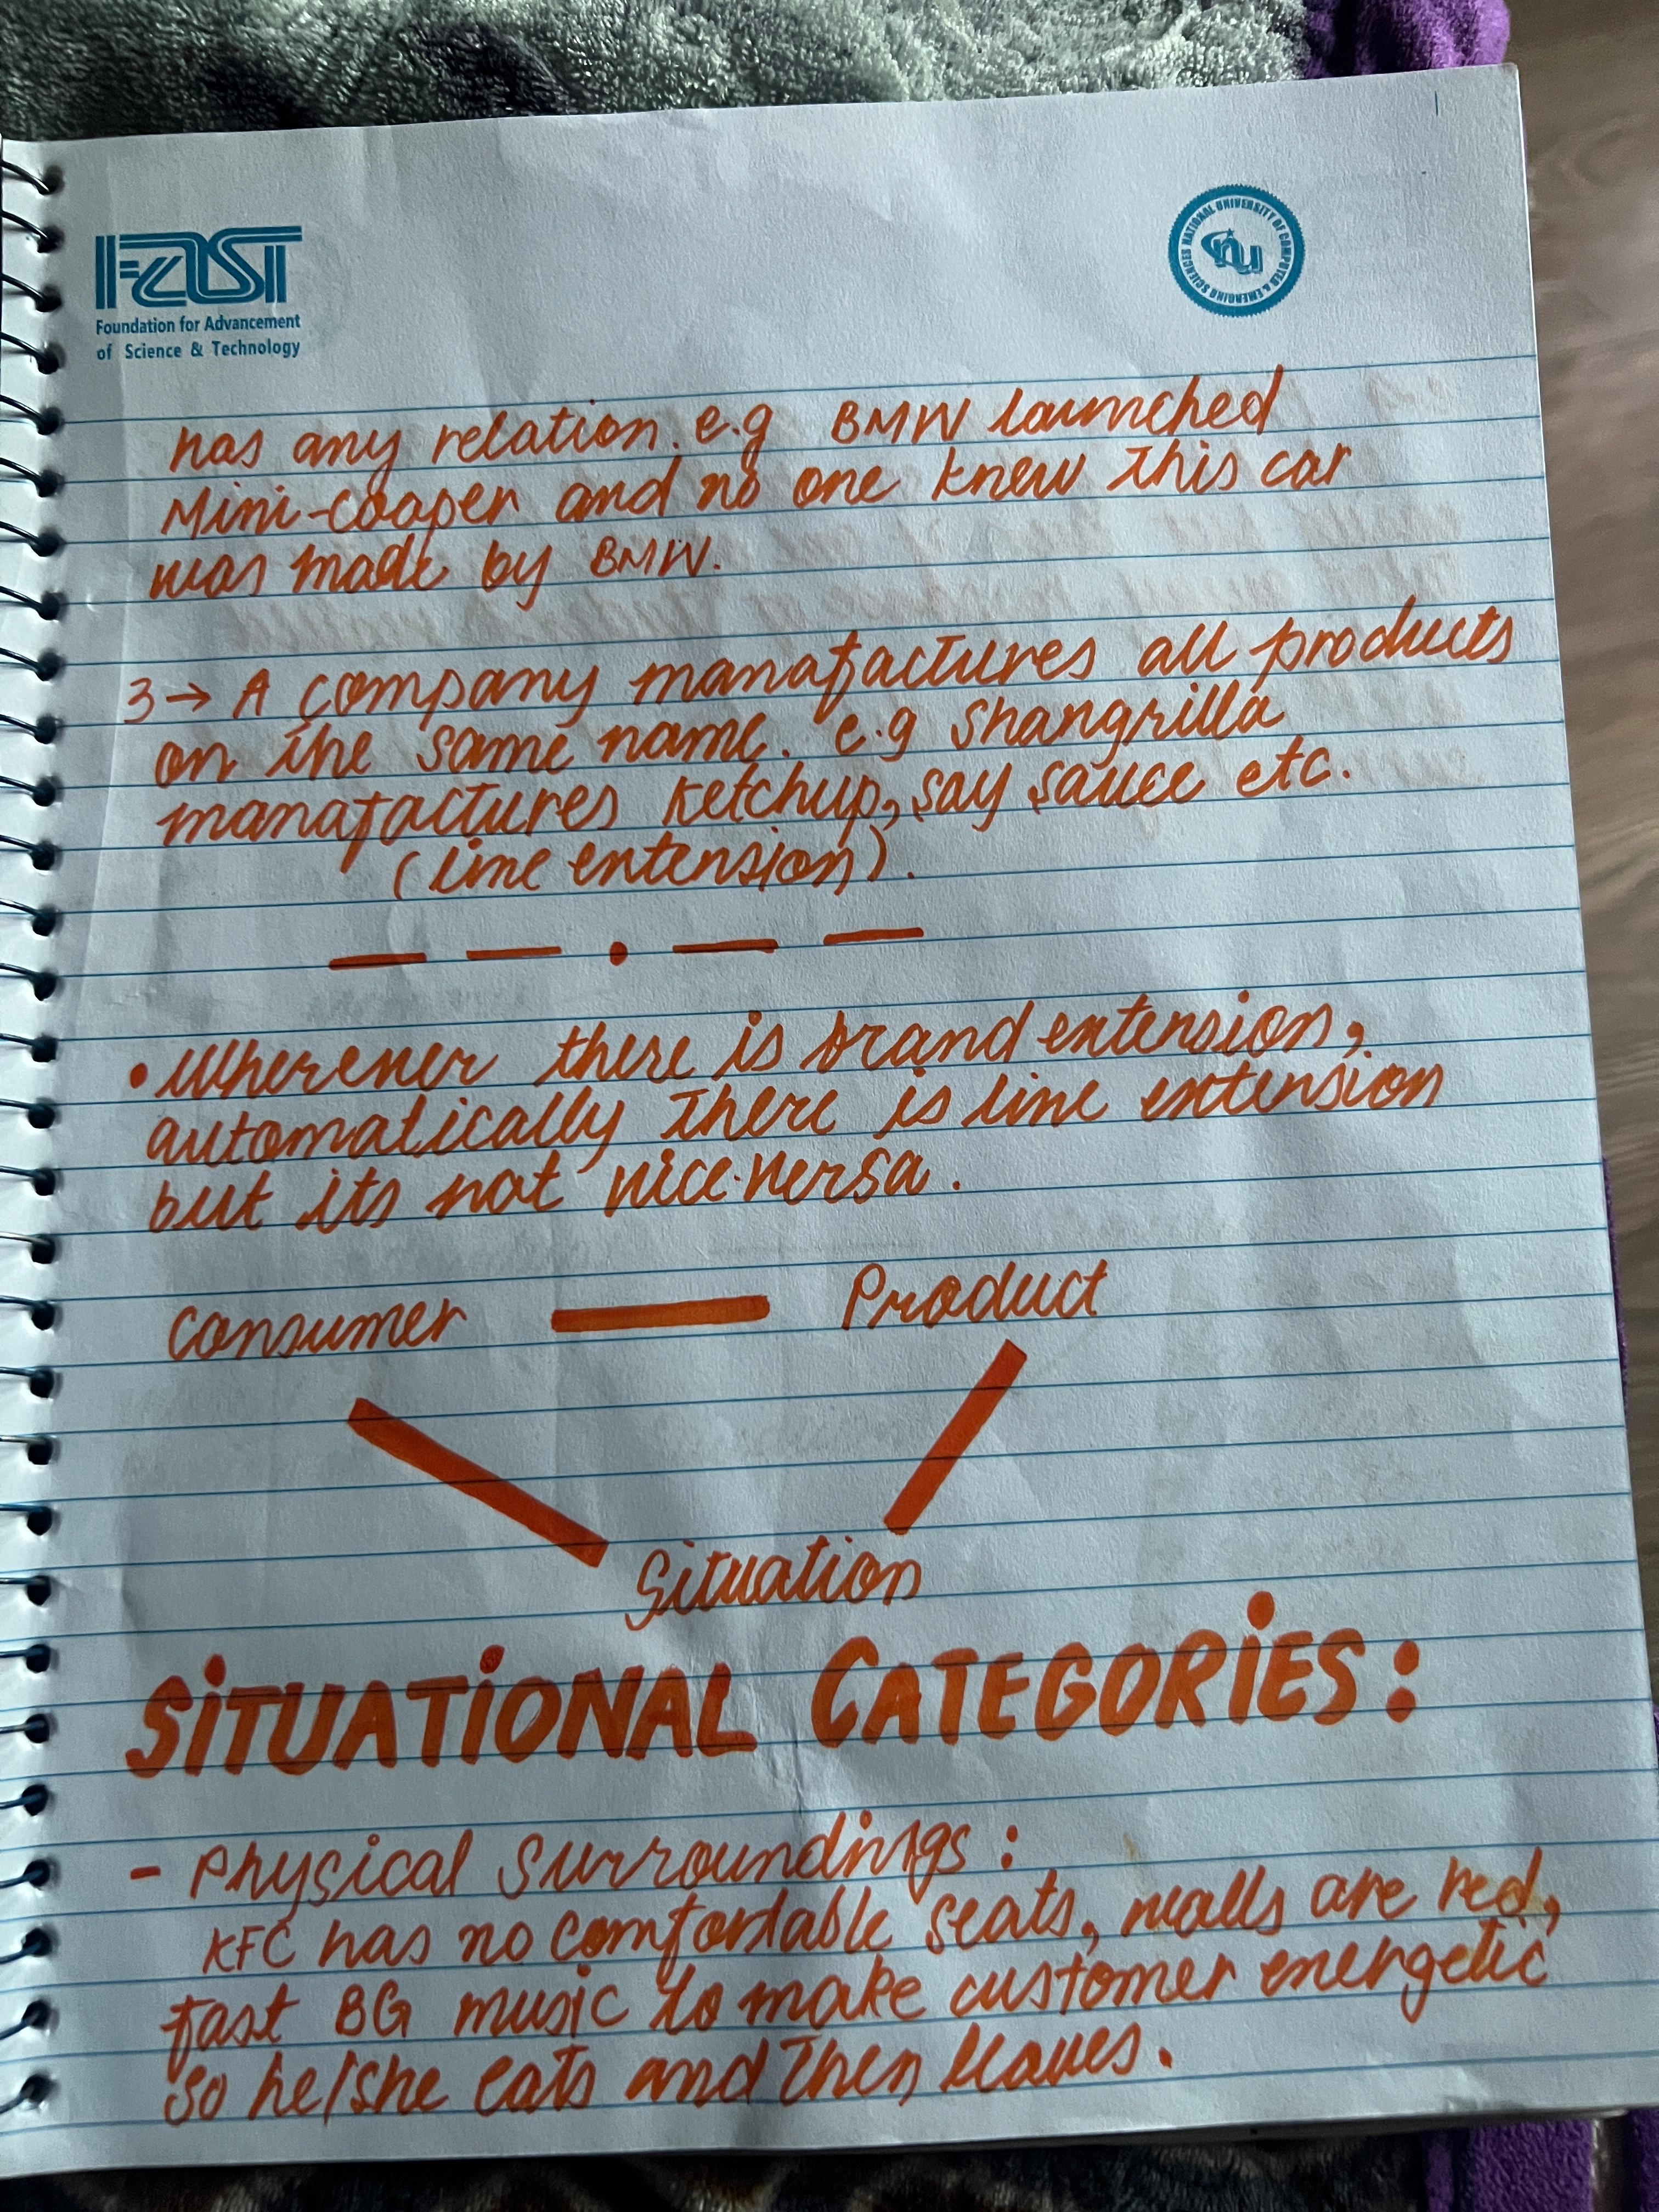 FAST
Foundation for Advancement
of Science & Technology
NATIONAL UNIVERSITY OF COMPUTER & EMERGING SCIENCES
nu
has any relation. e.g BMW launched
Mini-Cooper and no one knew this car
was made by BMW.
3→ A company manafactures all products
on the same name. e.g Shangrilla
manafactures ketchup, soy sauce etc.
(line extension).
• Wherever there is brand extension,
automatically there is line extension
but its not vice-versa.
Consumer — Product
Situation
SITUATIONAL CATEGORIES:
- Physical Surroundings:
KFC has no comfortable seats, walls are red,
fast BG music to make customer energetic
so he/she eats and then leaves.